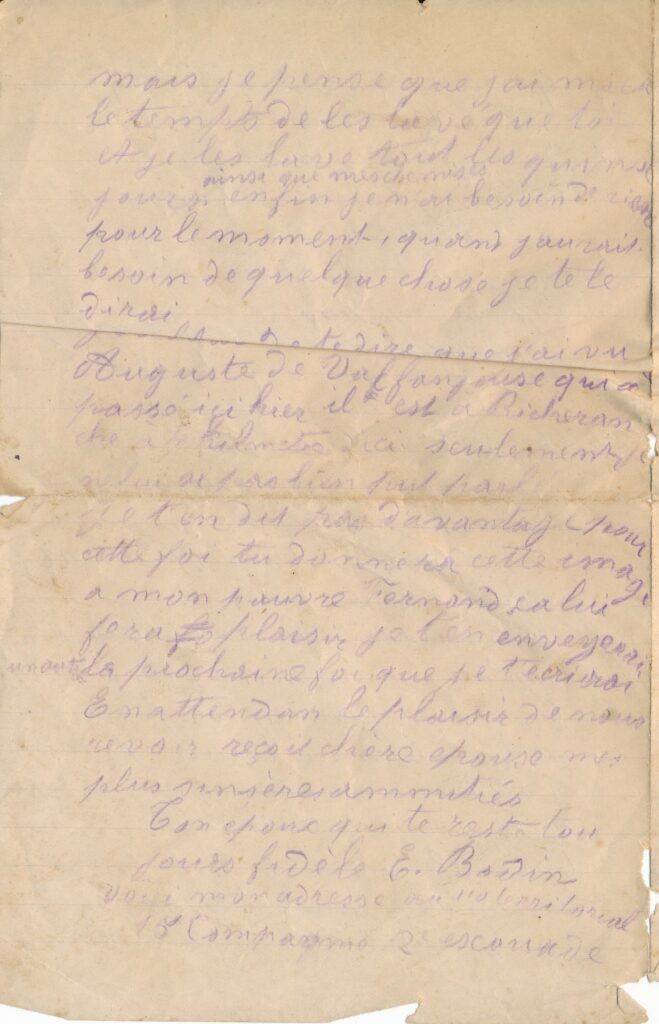 mais je pense que jai mieux
le temps de les lavé que toi
et je les lave tout les quinse
ainsi que mes chemises
jours, enfin je n'ai besoin de rien
pour le moment, quand jaurait
besoin de quelque chose je te le
dirai
te dire que j'ai vu
Auguste de Valfanjouse qui a
passé ici hier il est a Richeran
che à kilmetre dici seulement je
ne lui ai pas bien put parl
Je t'en dit pas davantage pour
cette foi tu donnera cette image
a mon pauvre Fernand sa lui
fera plaisir je t'en envoyerai
un autre la prochaine foi que je t'ecrirai
En attendan le plaisir de nous
revoir reçoit chère epouse mes
plus sinsères ammitiés
Ton epoux qui te reste tou
jours fidèle E. Bodin
voici mon adresse au territorial
15e Compagnie 2e escouade